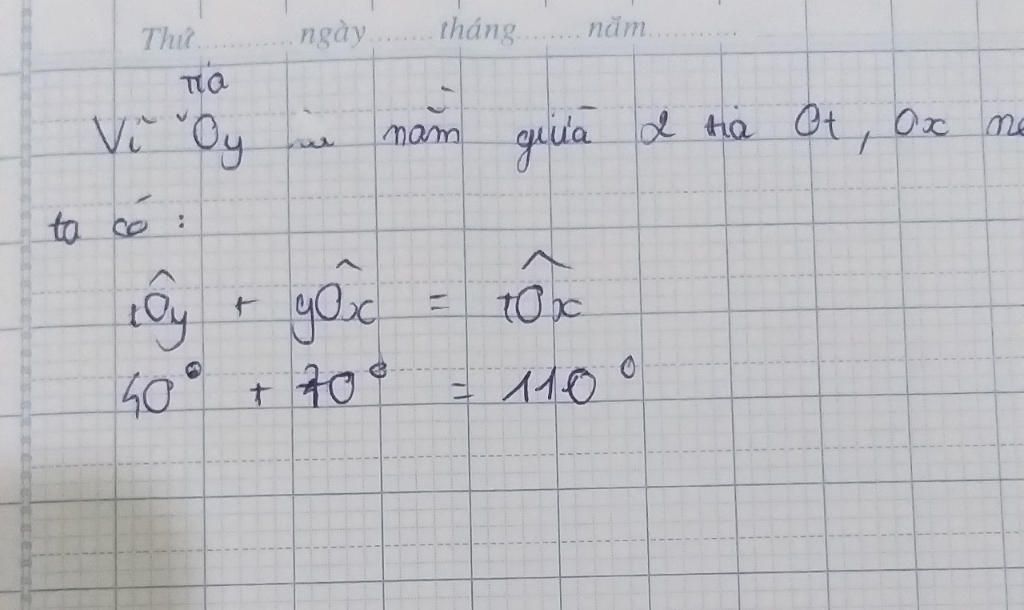 Thứ ngày tháng năm
tia
Vì Oy nằm giữa 2 tia Ot, Ox
ta có :
tÔy + yÔx = tÔx
40° + 70° = 110°